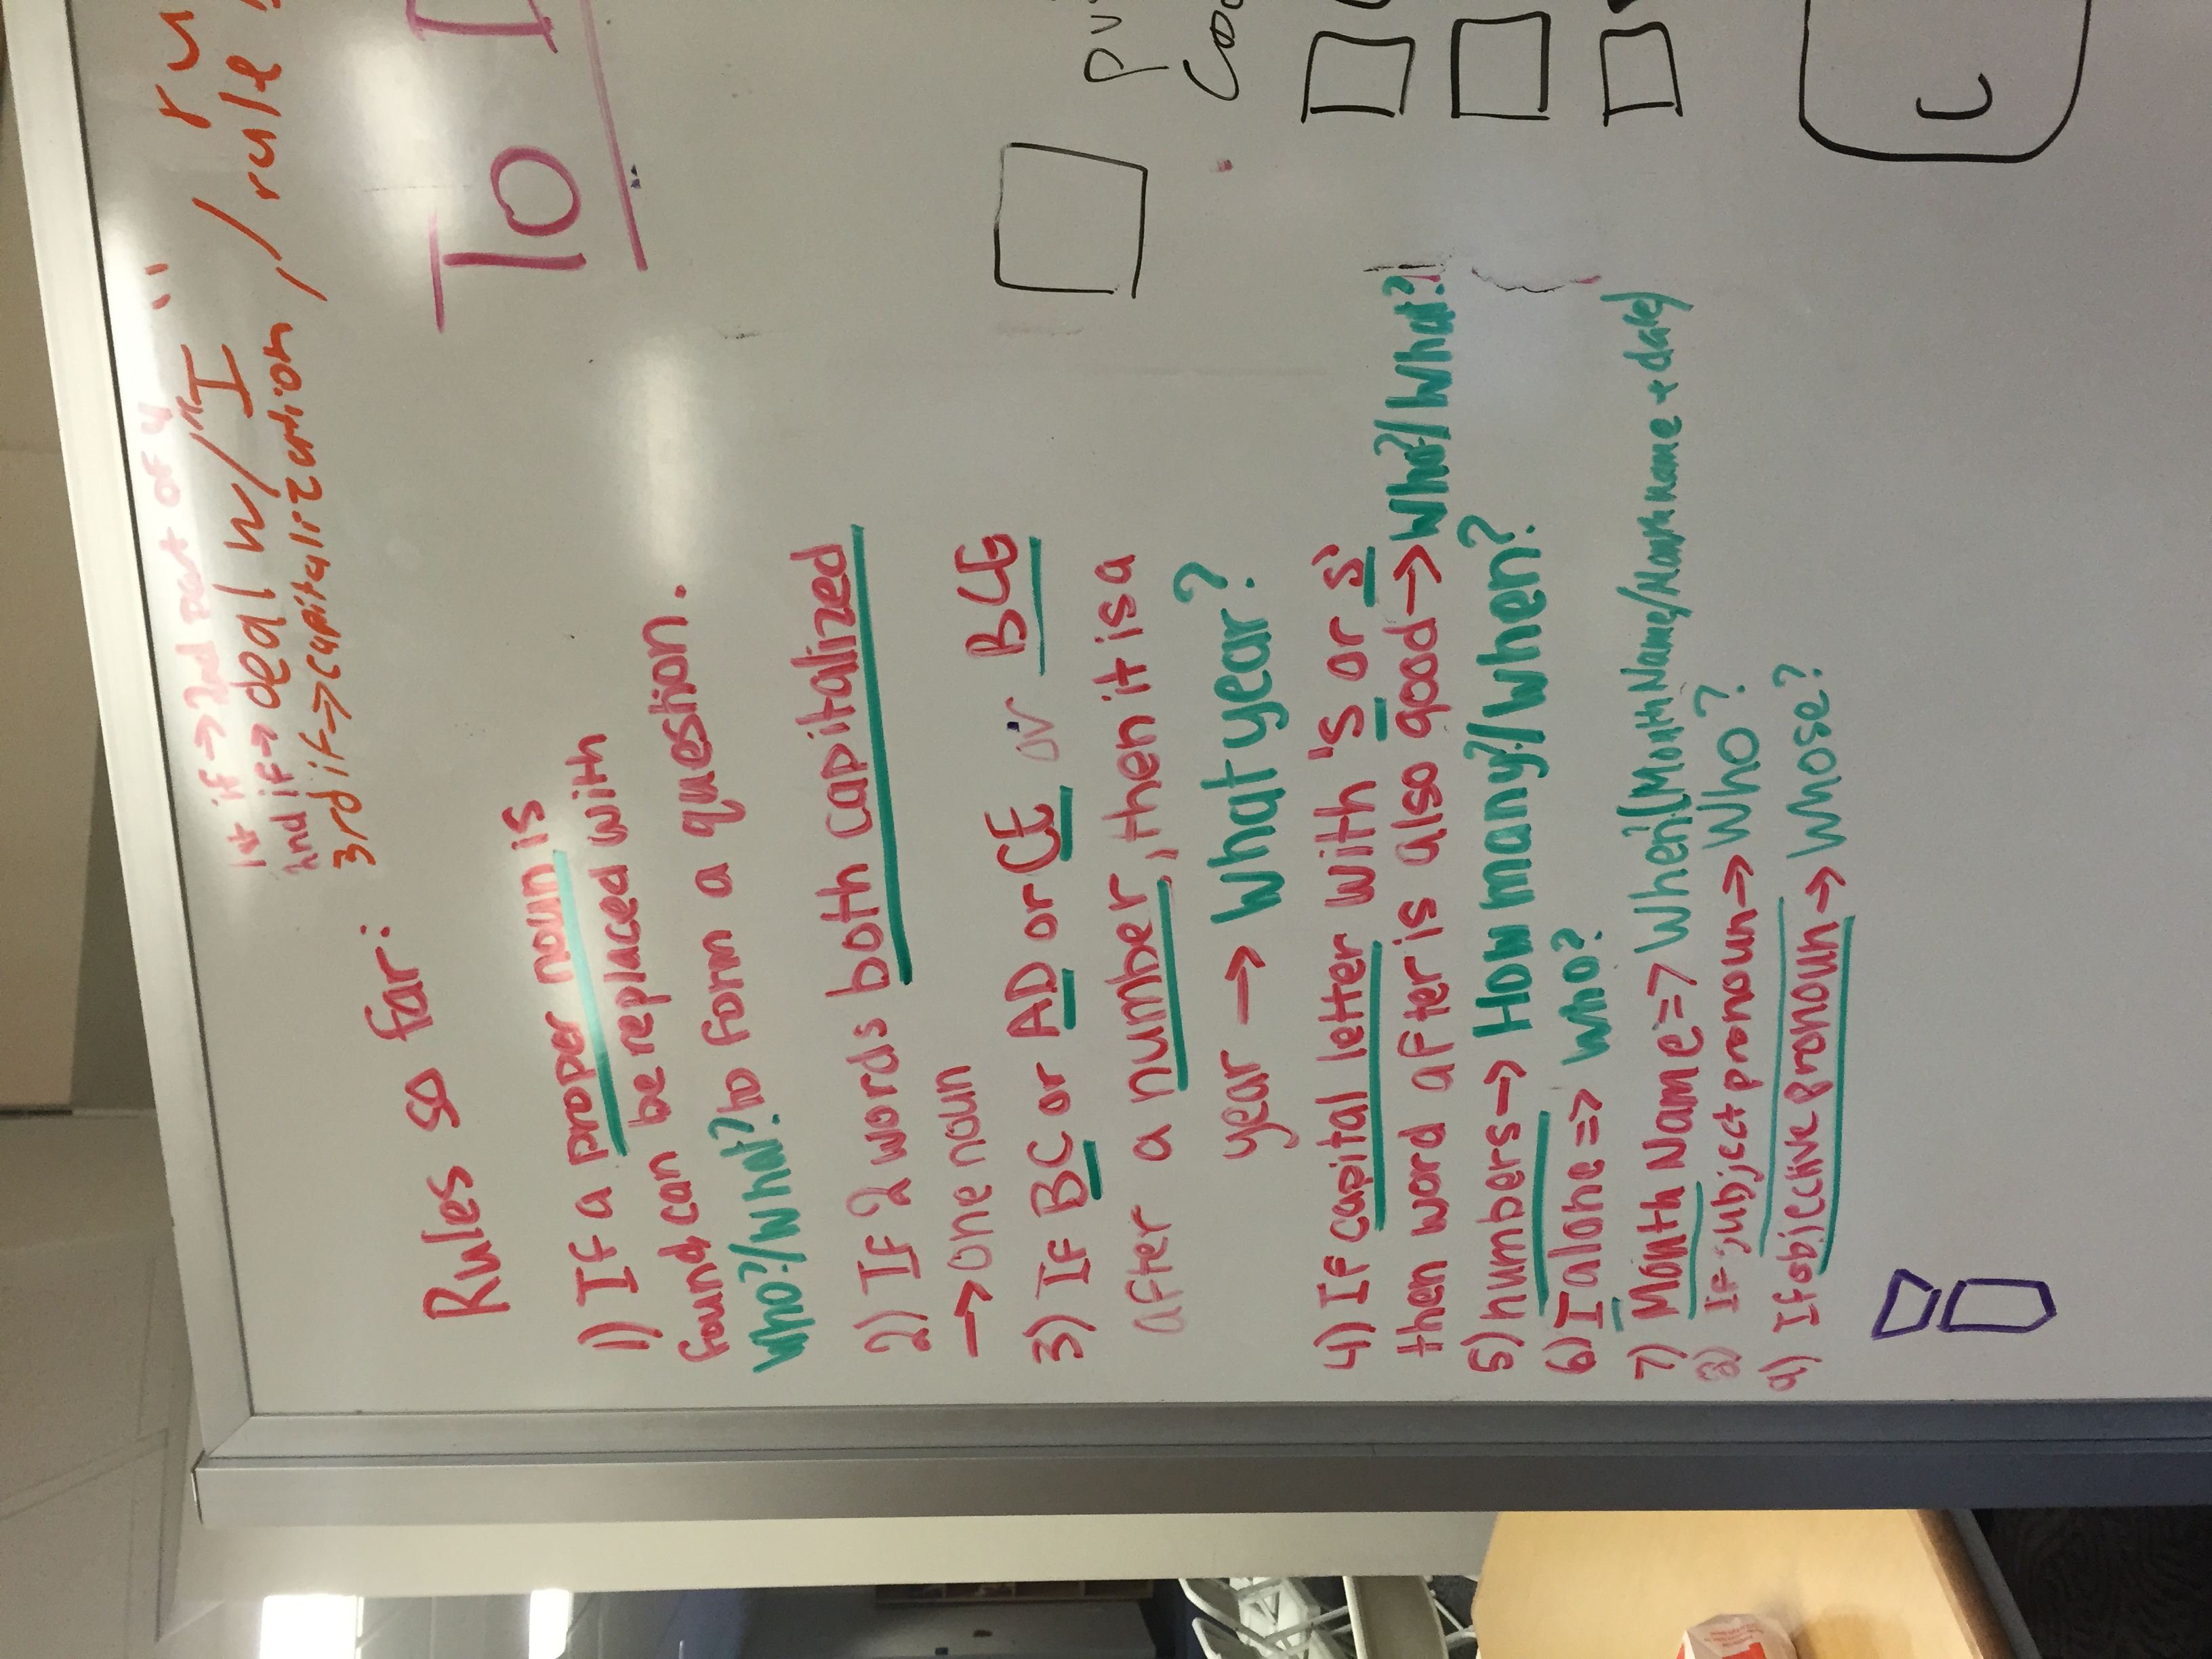 1st if → 2nd part of 4
2nd if → deal w/ "I"
3rd if → capitalization, / rule
To
Rules so far:
1) If a proper noun is
found, can be replaced with
who?/What? to form a question.
2) If 2 words both capitalized
→ one noun
3) If BC or AD or CE or BCE
after a number, then it is a
year → What year?
4) If capital letter with 's or s'
then word after is also good → Who?/What?
5) numbers → How many?/When?
6) I alone => Who?
7) Month Name => When? (Month Name/Month name + date)
8) If subject pronoun → Who?
9) If objective pronoun → Whose?